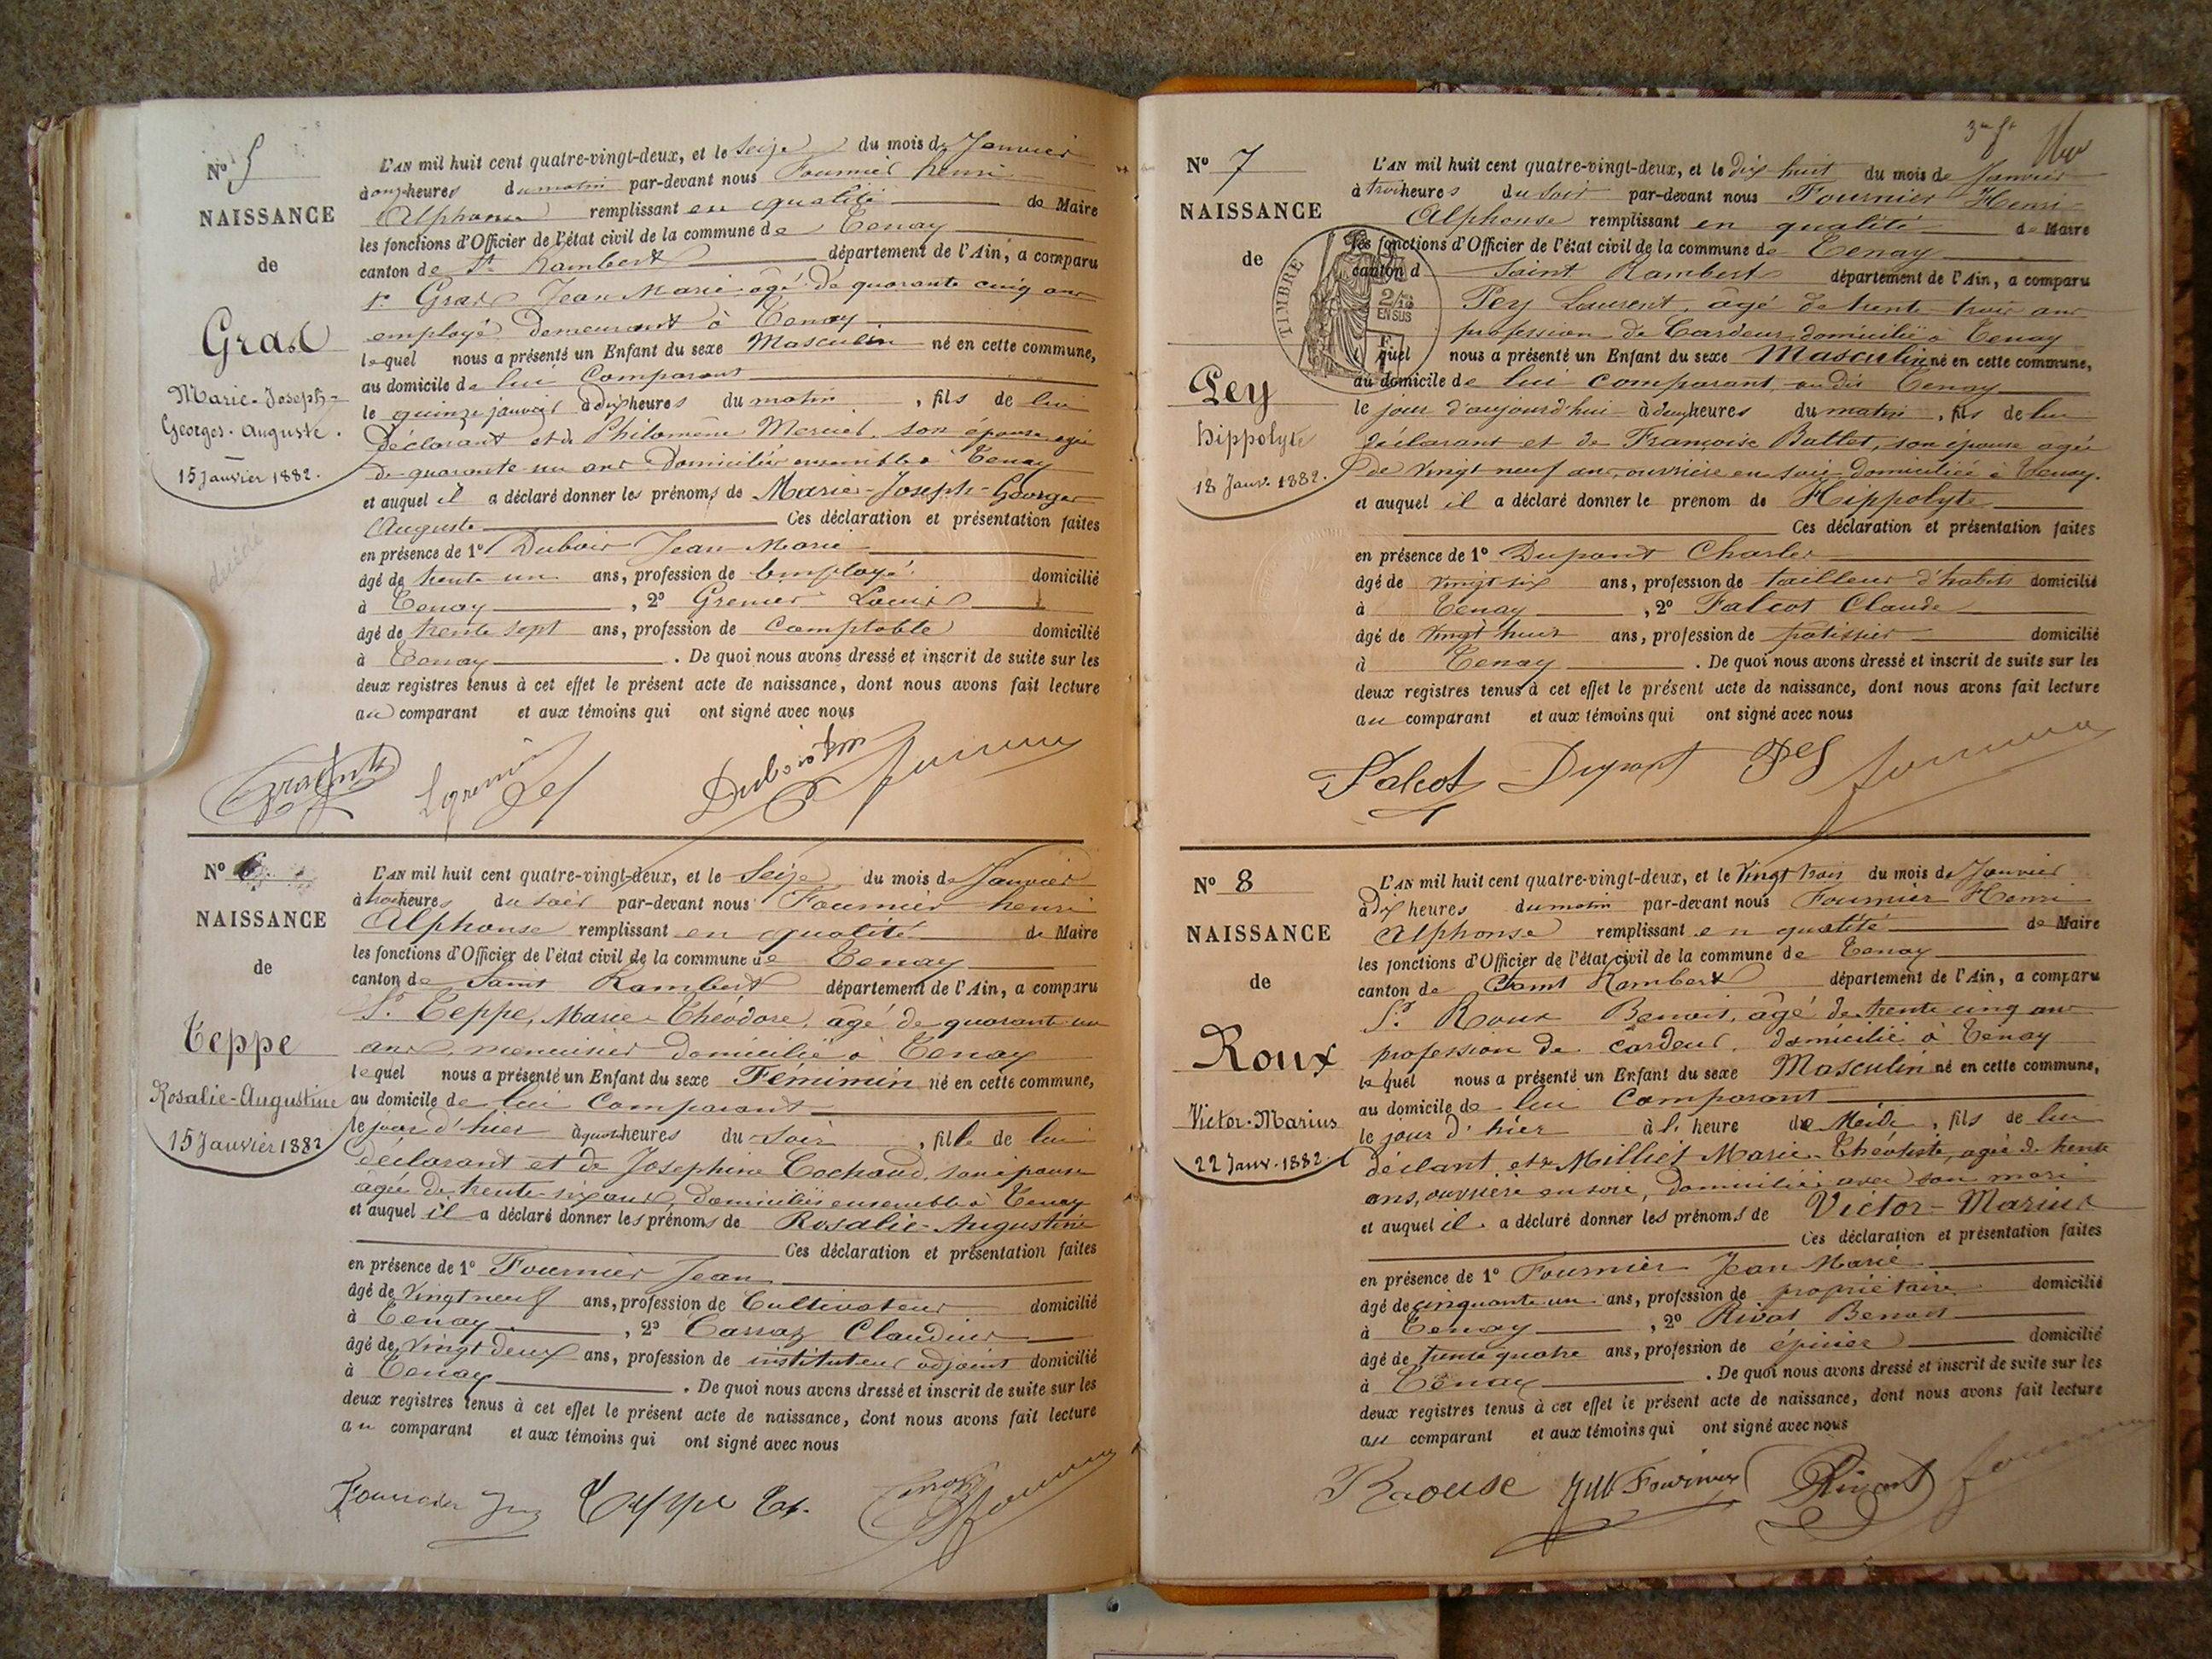 Nº 5
NAISSANCE
de
Gras
Marie-Joseph-
Georges-Auguste.
15 Janvier 1882.
L'AN mil huit cent quatre-vingt-deux, et le seize du mois de Janvier
à onze heures du matin par-devant nous Fournier henri
Alphonse remplissant en qualité de Maire
les fonctions d'Officier de l'état civil de la commune de Tenay
canton de St Rambert département de l'Ain, a comparu
Sr Gras Jean Marie âgé de quarante cinq ans
employé demeurant à Tenay
lequel nous a présenté un Enfant du sexe Masculin né en cette commune,
au domicile de lui Comparant
le quinze janvier à dix heures du matin, fils de lui
déclarant et de Philomène son épouse agée
de quarante un ans domiciliés ensemble à Tenay
et auquel il a déclaré donner les prénoms de Marie-Joseph-Georges
Auguste Ces déclaration et présentation faites
en présence de 1º Dubois Jean Marie
âgé de trente un ans, profession de Employé domicilié
à Tenay, 2º Grenier Louis
âgé de trente sept ans, profession de Comptable domicilié
à Tenay. De quoi nous avons dressé et inscrit de suite sur les
deux registres tenus à cet effet le présent acte de naissance, dont nous avons fait lecture
au comparant et aux témoins qui ont signé avec nous
Nº 6
NAISSANCE
de
Teppe
Rosalie-Augustine
15 Janvier 1882
L'AN mil huit cent quatre-vingt-deux, et le Seize du mois de Janvier
à trois heures du soir par-devant nous Fournier henri
Alphonse remplissant en qualité de Maire
les fonctions d'Officier de l'état civil de la commune de Tenay
canton de Saint Rambert département de l'Ain, a comparu
Sr Teppe, Marie-Théodore, âgé de quarante un
ans, menuisier domicilié à Tenay
lequel nous a présenté un Enfant du sexe Féminin né en cette commune,
au domicile de lui Comparant
le jour d'hier à quatre heures du Soir, fille de lui
déclarant et de Josephine Cochaud, son épouse
agée de trente-six ans, domiciliés ensemble à Tenay
et auquel il a déclaré donner les prénoms de Rosalie-Augustine
Ces déclaration et présentation faites
en présence de 1º Fournier Jean
âgé de vingt neuf ans, profession de Cultivateur domicilié
à Tenay, 2º Carraz Claudius
âgé de vingt deux ans, profession de instituteur adjoint domicilié
à Tenay. De quoi nous avons dressé et inscrit de suite sur les
deux registres tenus à cet effet le présent acte de naissance, dont nous avons fait lecture
au comparant et aux témoins qui ont signé avec nous
Fournier Jean Teppe
Nº 7
NAISSANCE
de
Pey
hippolyte
18 Janv. 1882.
TIMBRE
2/10
EN SUS
L'AN mil huit cent quatre-vingt-deux, et le dix-huit du mois de Janvier
à trois heures du soir par-devant nous Fournier Henri
Alphonse remplissant en qualité de Maire
les fonctions d'Officier de l'état civil de la commune de Tenay
canton d Saint Rambert département de l'Ain, a comparu
Pey Laurent, âgé de trente trois ans
profession de Cardeur domicilié à Tenay
lequel nous a présenté un Enfant du sexe Masculin né en cette commune,
au domicile de lui comparant, au dit Tenay
le jour d'aujourd'hui à deux heures du matin, fils de lui
déclarant et de Françoise Ballet, son épouse agée
de vingt neuf ans, ouvrière en soie domiciliée à Tenay.
et auquel il a déclaré donner le prenom de Hippolyte
Ces déclaration et présentation faites
en présence de 1º Dupont Charles
âgé de vingt six ans, profession de tailleur d'habits domicilié
à Tenay, 2º Falcot Claude
âgé de vingt huit ans, profession de pâtissier domicilié
à Tenay. De quoi nous avons dressé et inscrit de suite sur les
deux registres tenus à cet effet le présent acte de naissance, dont nous avons fait lecture
au comparant et aux témoins qui ont signé avec nous
Falcot Dupont Pey
Nº 8
NAISSANCE
de
Roux
Victor-Marius
22 Janv. 1882.
L'AN mil huit cent quatre-vingt-deux, et le vingt trois du mois de Janvier
à dix heures du matin par-devant nous Fournier Henri
Alphonse remplissant en qualité de Maire
les fonctions d'Officier de l'état civil de la commune de Tenay
canton de Saint Rambert département de l'Ain, a comparu
Sr Roux Benoit, âgé de trente cinq ans
profession de cardeur, domicilié à Tenay
lequel nous a présenté un Enfant du sexe Masculin né en cette commune,
au domicile de lui Comparant
le jour d'hier à l' heure de Midi, fils de lui
déclant et de Milliet Marie-Théotiste, agée de trente
ans, ouvrière en soie, domiciliée avec son mari
et auquel il a déclaré donner les prénoms de Victor-Marius
Ces déclaration et présentation faites
en présence de 1º Fournier Jean Marie
âgé de cinquante un ans, profession de propriétaire domicilié
à Tenay, 2º Rivat Benoit
âgé de trente quatre ans, profession de épicier domicilié
à Tenay. De quoi nous avons dressé et inscrit de suite sur les
deux registres tenus à cet effet le présent acte de naissance, dont nous avons fait lecture
au comparant et aux témoins qui ont signé avec nous
Raouse Fournier